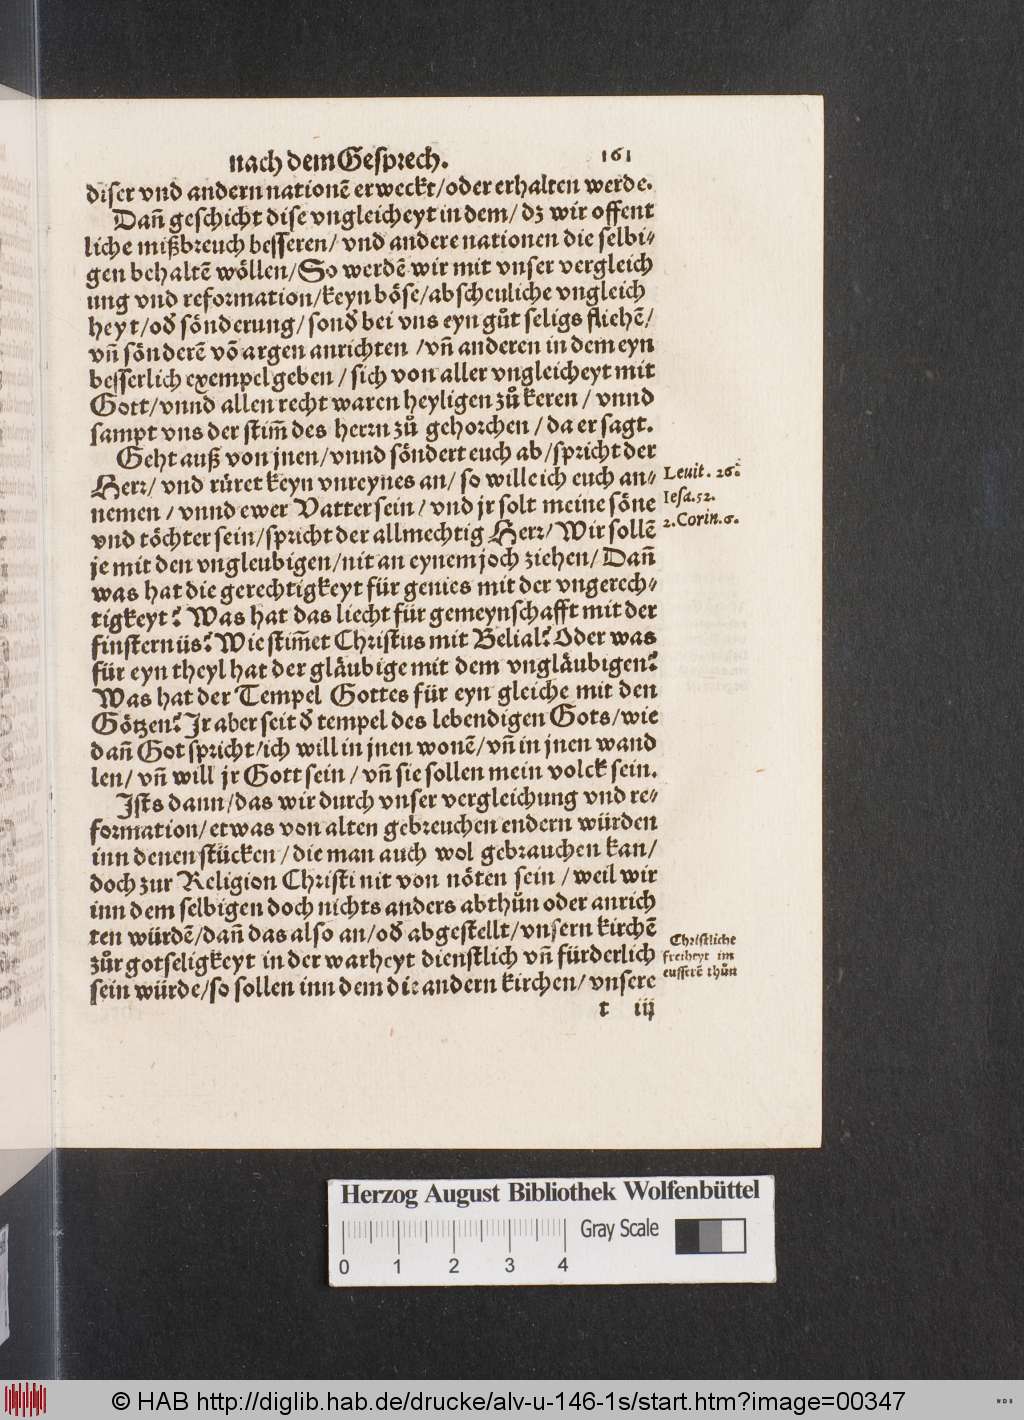 nach dem Gesprech.
161
diser vnd andern nationē erweckt/oder erhalten werde.
Dañ geschicht dise vngleicheyt in dem/ dz wir offent
liche mißbreuch besseren/ vnd andere nationen die selbi⸗
gen behaltē wöllen/So werdē wir mit vnser vergleich
ung vnd reformation/keyn böse/abscheuliche vngleich
heyt/od̛ sönderung/sond̛ bei vns eyn gůt seligs fliehē/
vñ sönderē vō argen anrichten /vñ anderen in dem eyn
besserlich exempel geben / sich von aller vngleicheyt mit
Gott/vnnd allen recht waren heyligen zů keren / vnnd
sampt vns der stim̃ des herrn zů gehorchen / da er sagt.
Geht auß von jnen/vnnd söndert euch ab/spricht der
Herr/ vnd rüret keyn vnreynes an/ so will eich euch an⸗
nemen / vnnd ewer Vatter sein / vnd jr solt meine söne
vnd töchter sein/spricht der allmechtig Herr/ Wir sollē
je mit den vngleubigen/nit an eynem joch ziehen/ Dañ
was hat die gerechtigkeyt für genies mit der vngerech⸗
tigkeyt? Was hat das liecht für gemeynschafft mit der
finsternüs? Wie stim̃et Christus mit Belial? Oder was
für eyn theyl hat der gläubige mit dem vngläubigen?
Was hat der Tempel Gottes für eyn gleiche mit den
Götzen? Jr aber seit d̛ tempel des lebendigen Gots/wie
dañ Got spricht/ich will in jnen wonē/vñ in jnen wand
len/ vñ will jr Gott sein / vñ sie sollen mein volck sein.
Ists dann/das wir durch vnser vergleichung vnd re⸗
formation/etwas von alten gebreuchen endern würden
inn denen stücken /die man auch wol gebrauchen kan/
doch zur Religion Christi nit von nöten sein / weil wir
inn dem selbigen doch nichts anders abthůn oder anrich
ten würdē/dañ das also an/od̛ abgestellt/vnsern kirchē
zůr gotseligkeyt in der warheyt dienstlich vñ fürderlich
sein würde/so sollen inn dem die andern kirchen/vnsere
t iij
Leuit. 26.
Iesa.52.
2.Corin.6.
Christliche
freiheyt im
eusserē thůn
Herzog August Bibliothek Wolfenbüttel
Gray Scale
0 1 2 3 4
© HAB http://diglib.hab.de/drucke/alv-u-146-1s/start.htm?image=00347